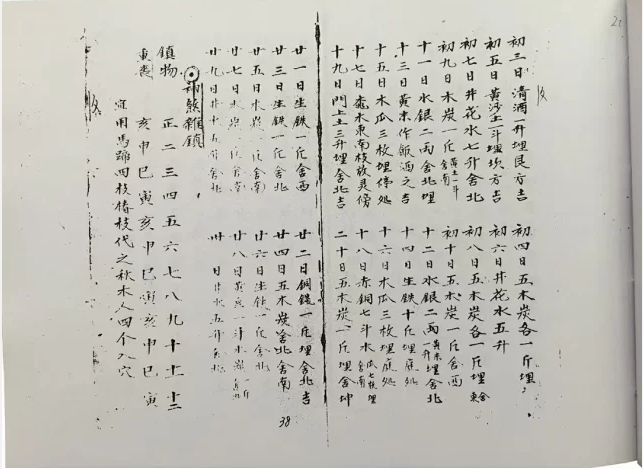 初三日清酒一升埋艮方吉
初四日五木炭各一斤埋
初五日黄沙土斗埋坎方吉
初六日井花水五升
初七日井花水七升舍北
初八日五木炭各一斤埋舍東
初九日木炭一斤黄土一斗舍南
初十日五木炭一斤舍西
十一日水銀二两舍北埋
十二日水銀二两黄米一升埋舍北
十三日黄米作飯酒之吉
十四日生鉄十斤埋庭処
十五日木瓜三枚埋停処
十六日木瓜三枚埋庭処
十七日 水東南枝放灵傍
十八日赤銅七斗水瓜七枚埋舍南
十九日門上土三升埋舍北吉
二十日五木炭一斤埋舍坤
38
廿一日生鉄一斤舍西
廿二日銅鏡一斤埋舍北吉
廿三日生鉄一斤埋舍北
廿四日五木炭舍北舍南
廿五日水炭一斤舍南
廿六日生鉄一斤舍北
廿七日水炭一斤舍南
廿八日黄豆一斗水炭一斤
廿九日井水五升舍北
卅日井水五升舍北
煞雜鎮
鎮物 正二三四五六七八九十十一十二
重喪 亥申巳寅亥申巳寅亥申巳寅
宜用馬蹄四枝椿枝代之秋木人四个入穴